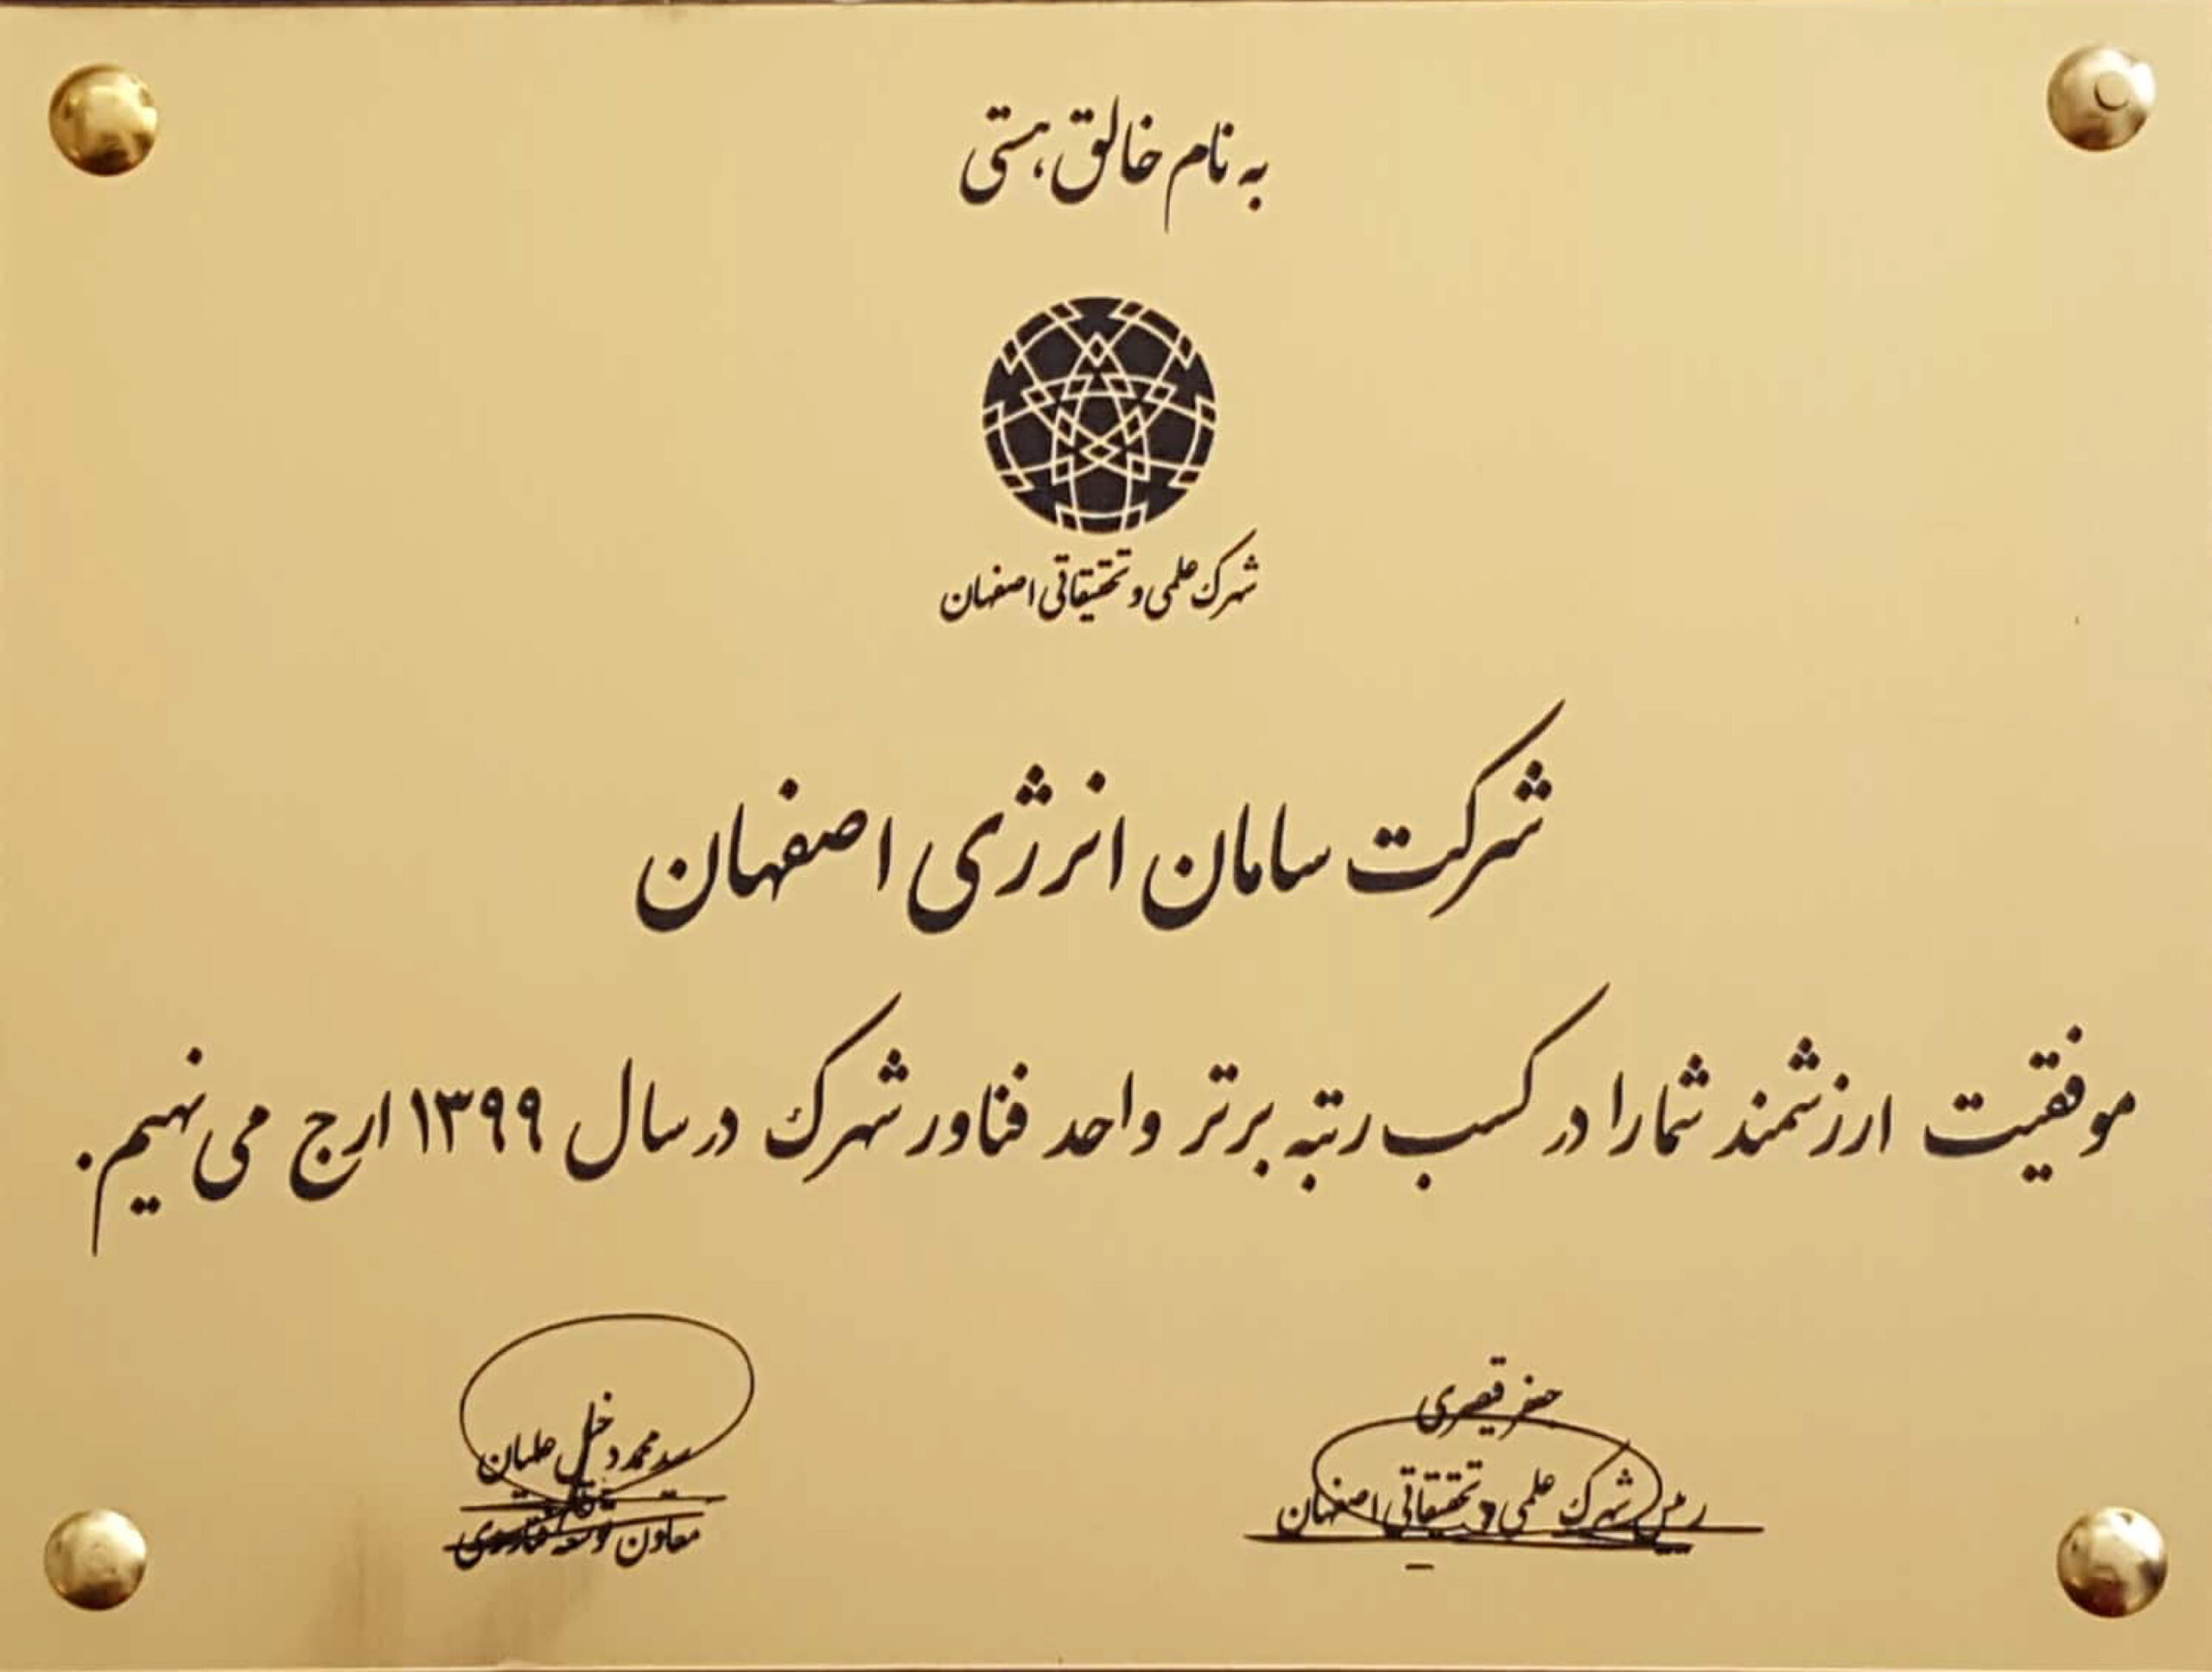 به نام خالق هستی
شهرک علمی و تحقیقاتی اصفهان
شرکت سامان انرژی اصفهان
موفقیت ارزشمند شما را در کسب رتبه برتر واحد فناور شهرک در سال ۱۳۹۹ ارج می نهیم.
جعفر قیصری
رئیس شهرک علمی و تحقیقاتی اصفهان
سید محمد دخیل علیان
معاون توسعه فناوری